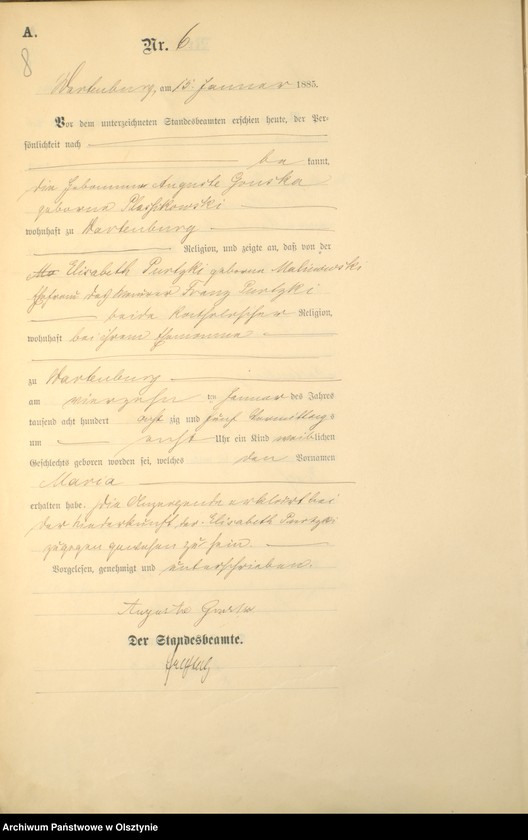 A.
8
Nr. 6
Wartenburg, am 15 Januar 1885.
Vor dem unterzeichneten Standesbeamten erschien heute, der Per-
sönlichkeit nach
be kannt,
die Hebamme Auguste
geborne
wohnhaft zu Wartenburg
Religion, und zeigte an, daß von der
Elisabeth Purtzki geborne Malinowski
Ehefrau des Maurer Franz Purtzki
beide katholischer Religion,
wohnhaft bei ihrem Ehemanne
zu Wartenburg
am vierzehn ten Januar des Jahres
tausend acht hundert acht zig und fünf Vormittags
um acht Uhr ein Kind weiblichen
Geschlechts geboren worden sei, welches den Vornamen
Maria
erhalten habe. Die Anzeigende erklärt bei
der Niederkunft der Elisabeth Purtzki
zugegen gewesen zu sein.
Vorgelesen, genehmigt und unterschrieben.
Auguste
Der Standesbeamte.
Archiwum Państwowe w Olsztynie